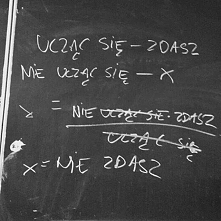 UCZĄC SIĘ – ZDASZ
NIE UCZĄC SIĘ – X
X = NIE UCZĄC SIĘ · ZDASZ
UCZĄC SIĘ
X = NIE ZDASZ